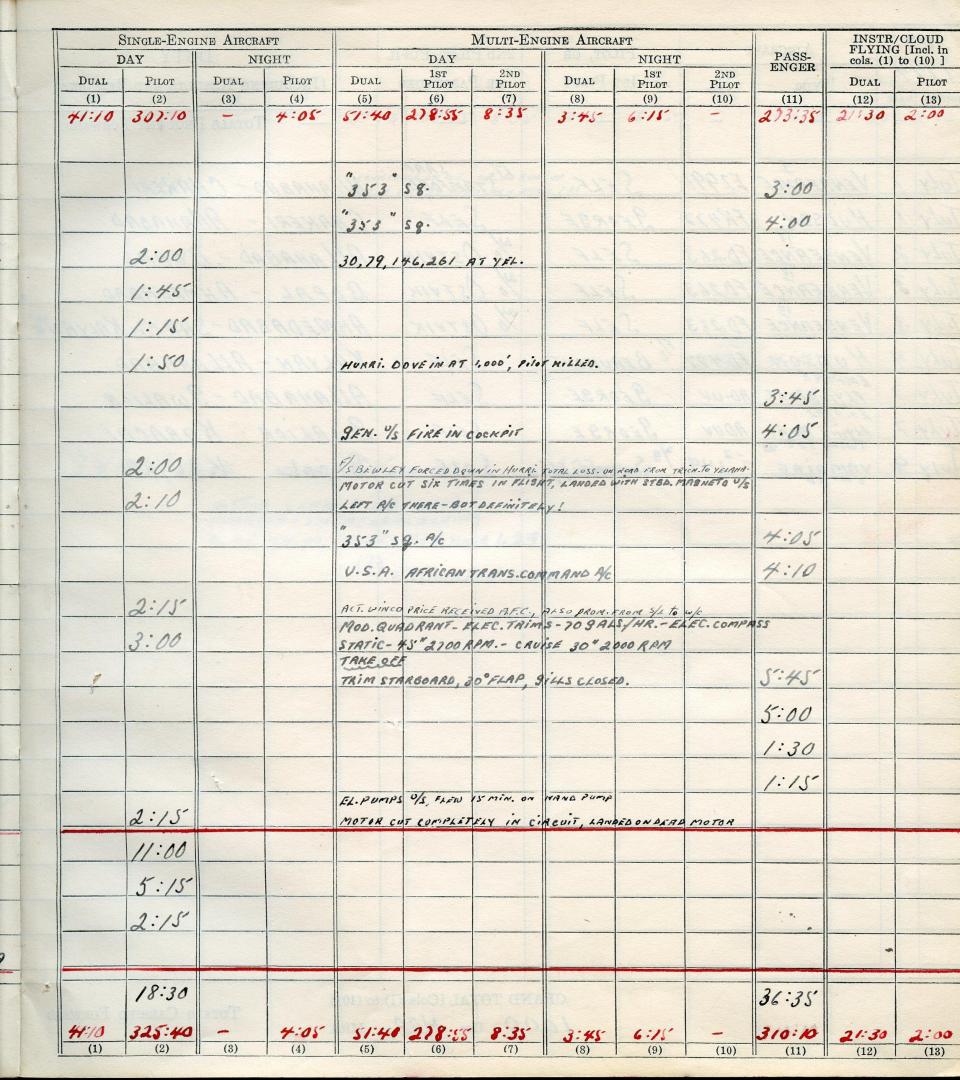 SINGLE-ENGINE AIRCRAFT MULTI-ENGINE AIRCRAFT INSTR/CLOUD FLYING [Incl. in cols. (1) to (10) ]
DAY NIGHT DAY NIGHT PASS-ENGER
DUAL PILOT DUAL PILOT DUAL 1ST PILOT 2ND PILOT DUAL 1ST PILOT 2ND PILOT DUAL PILOT
(1) (2) (3) (4) (5) (6) (7) (8) (9) (10) (11) (12) (13)
41:10 307:10 - 4:05 51:40 278:55 8:35 3:45 6:15 - 273:35 21:30 2:00
"353" SQ. 3:00
"353" SQ. 4:00
2:00 30,79,146,261 AT YEL.
1:45
1:15
1:50 HURRI. DOVE IN AT ,000', PILOT KILLED.
3:45
GEN. U/S FIRE IN COCKPIT 4:05
2:00 F/S BEWLEY FORCED DOWN IN HURRI. TOTAL LOSS. ON ROAD FROM TRICH. TO YELAHA-
MOTOR CUT SIX TIMES IN FLIGHT, LANDED WITH STBD. MAGNETO U/S
2:10 LEFT A/C THERE - BUT DEFINITELY!
"353" SQ. A/C 4:05
U.S.A. AFRICAN TRANS. COMMAND A/C 4:10
2:15 ACT. WINCO PRICE RECEIVED A.F.C., ALSO PROM. FROM S/L TO W/C
MOD. QUADRANT - ELEC. TRIMS - 70 GALS/HR. - ELEC. COMPASS
3:00 STATIC - 45" 2700 RPM. - CRUISE 30" 2000 RPM
TAKE OFF
TRIM STARBOARD, 30° FLAP, GILLS CLOSED. 5:45
5:00
1:30
1:15
EL. PUMPS U/S, FLEW 15 MIN. ON HAND PUMP
2:15 MOTOR CUT COMPLETELY IN CIRCUIT, LANDED ON DEAD MOTOR
11:00
5:15
2:15
18:30 36:35
41:10 325:40 - 4:05 51:40 278:55 8:35 3:45 6:15 - 310:10 21:30 2:00
(1) (2) (3) (4) (5) (6) (7) (8) (9) (10) (11) (12) (13)